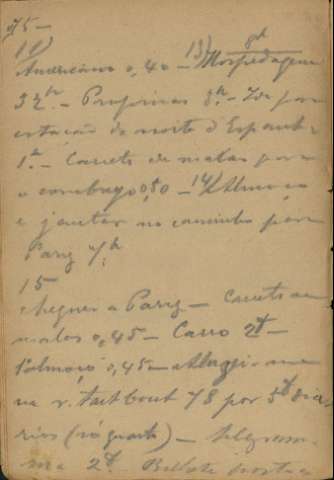 75-
12) 8h
Americano 0,40 - 13) Hospedagem
32h. - Propinas 8h. - Ida para
estação do norte d'Espanha
1h. - Carreto de malas para
o comboyo 0,50 - 14) Almoço
e jantar no caminho para
Pariz 7h.
15
cheguei a Pariz - Carreto de
malas 0,45 - Carro 2f. -
1º almoço 0,45 - Aluguei uma
na r. Taitbout 78 por 5f dia
rios (só quarto) - telegram
ma 2f. Bilhete postal